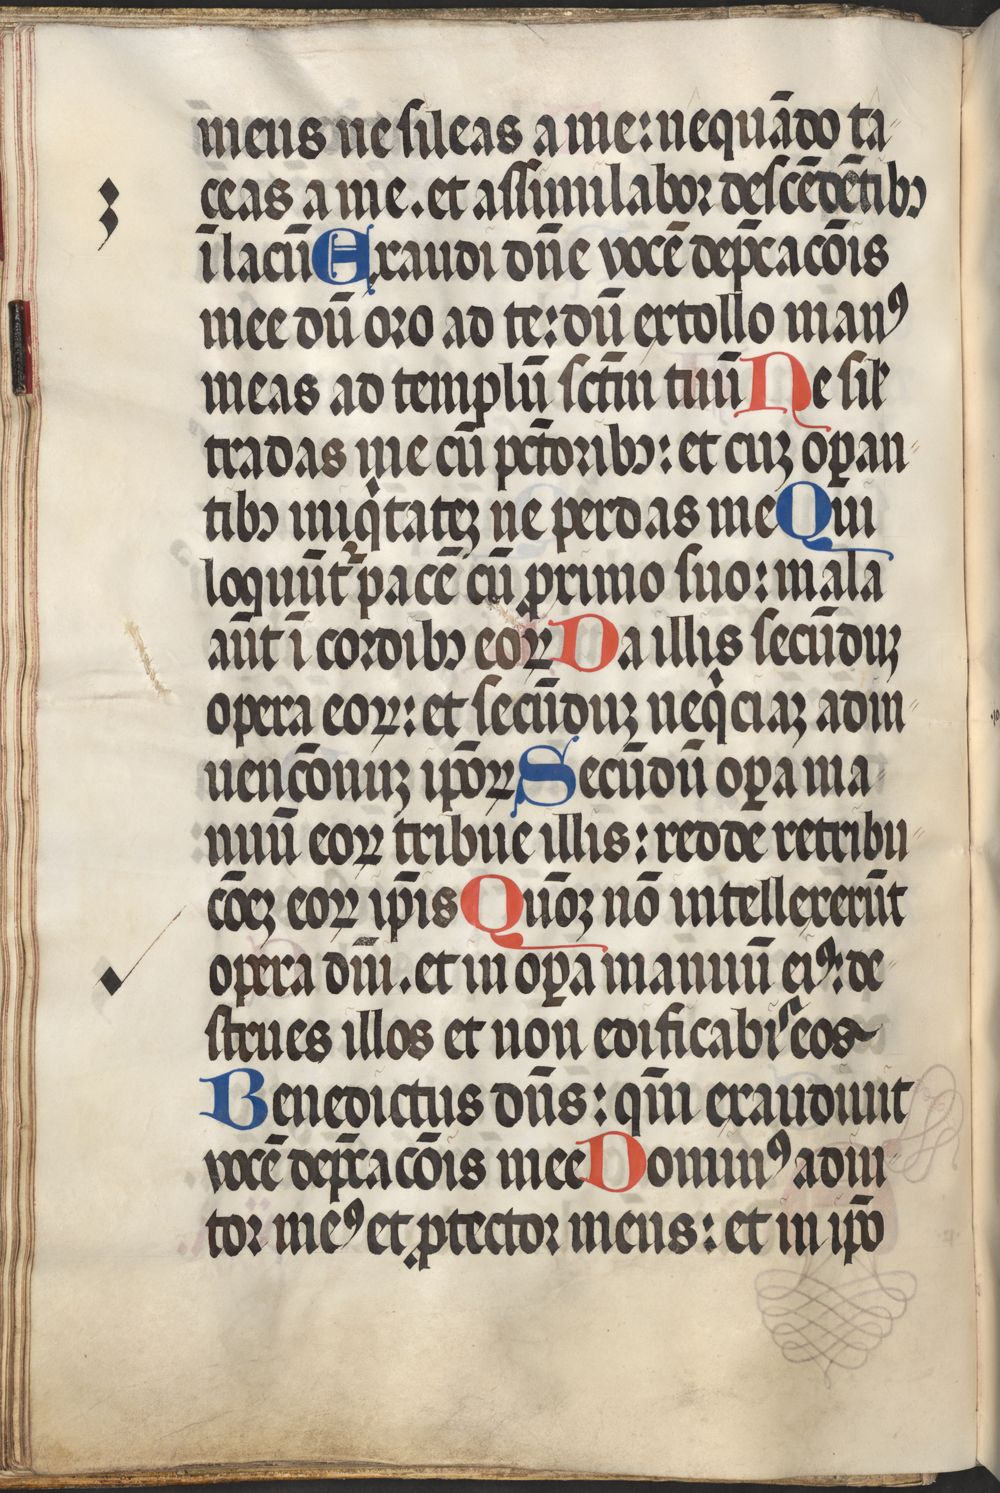 meus ne sileas a me: nequādo ta⸗
ceas a me. et assimilabor descēdētibꝫ
ī lacū Exaudi dn̄e vocē dep̄cacōis
mee dū oro ad te: dū extollo manꝰ
meas ad templū sctm̄ tuū Ne sil̄
tradas me cū pctōribꝫ: et cuꝫ oꝑan⸗
tibꝫ iniqͥtateꝫ ne perdas me Qui
loquūtᷣ pacē cū ꝓximo suo: mala
aūt ī cordibꝫ eoꝝ Da illis secūduꝫ
opera eoꝝ: et secūduꝫ neqͥciaꝫ adin⸗
uencōnuꝫ ip̄oꝝ Secūdū oꝑa ma⸗
nuū eoꝝ tribue illis: redde retribu⸗
cōeꝫ eoꝝ ip̄is Qūoꝫ nō intellexerūt
opera dn̄i. et in oꝑa manuū eiꝰ: de⸗
strues illos et non edificabiˢ eos
Benedictus dn̄s: qm̄ exaudiuit
vocē dep̄cacōis mee Dominꝰ adiu⸗
tor meꝰ et ꝓtector meus: et in ip̄o